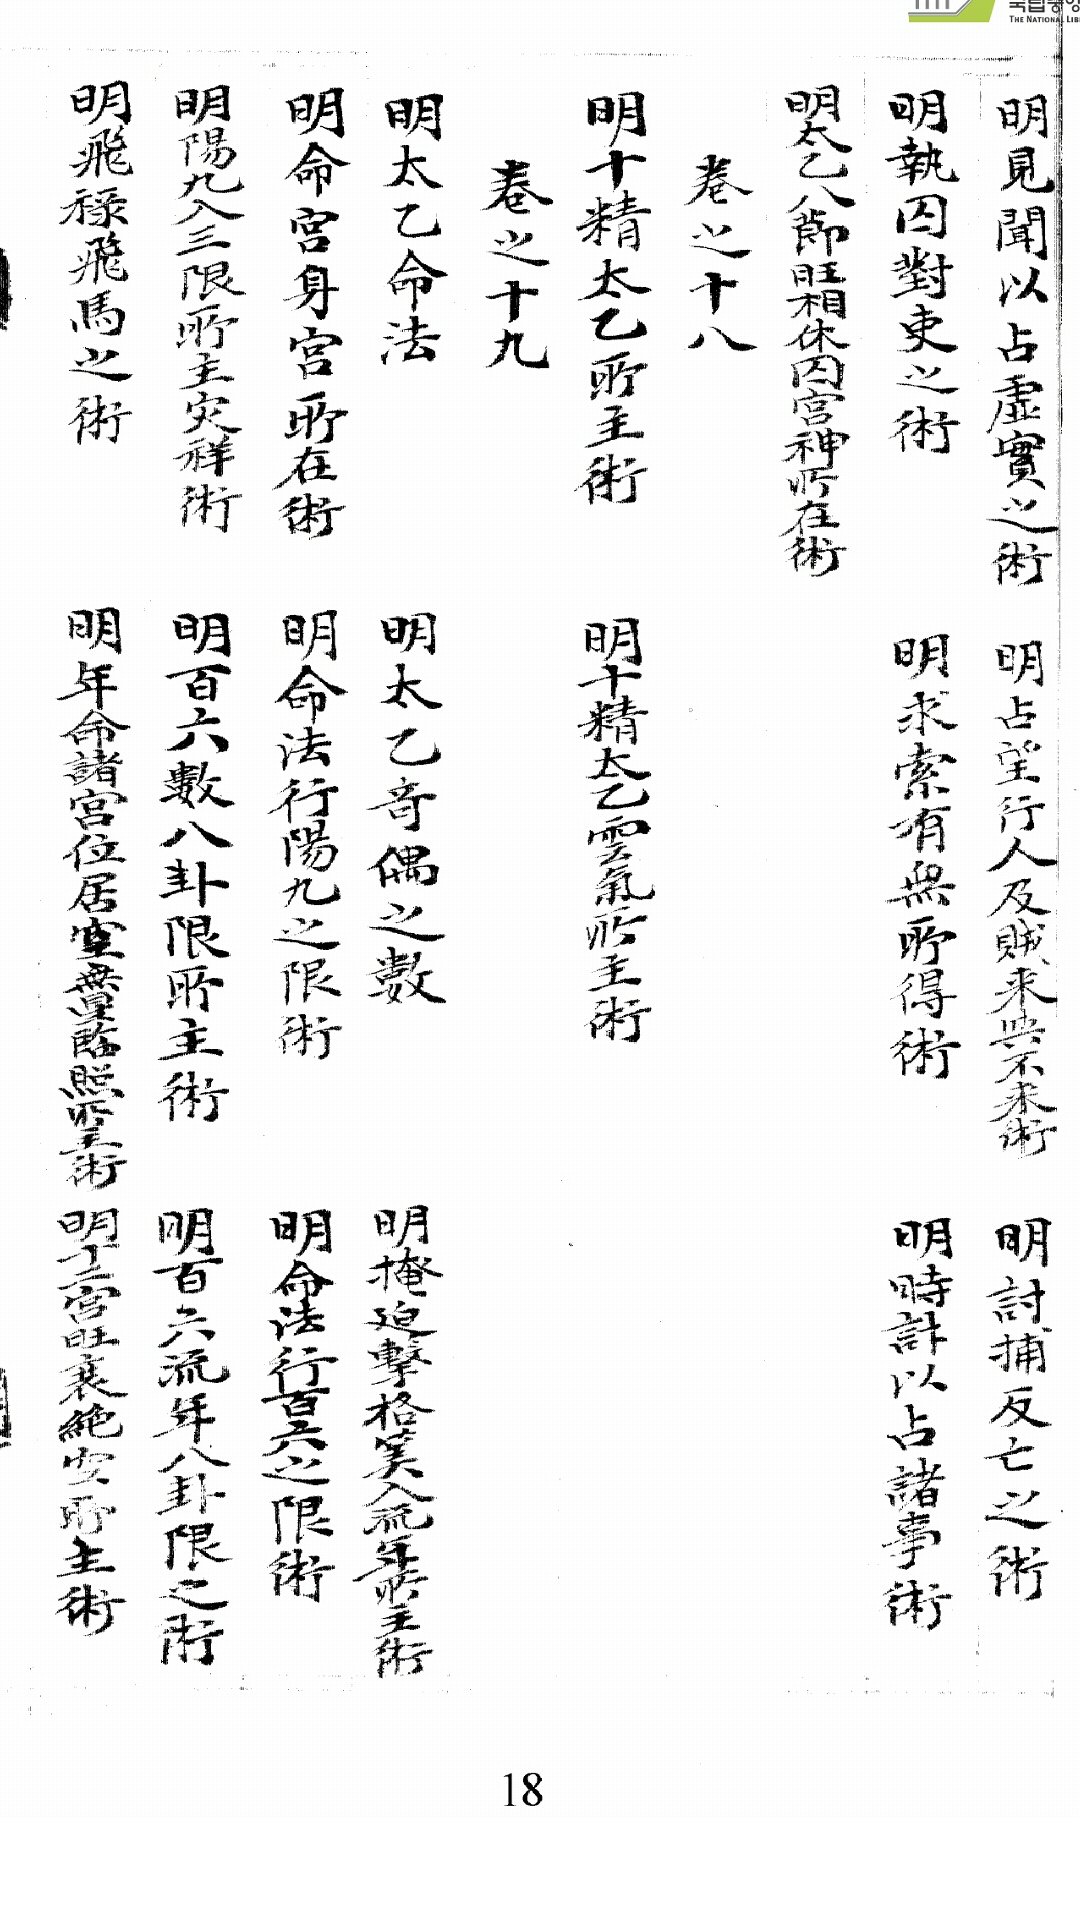 明見聞以占虛實之術
明占望行人及賊来與不来術
明討捕反亡之術
明執囚對吏之術
明求索有無所得術
明時計以占諸事術
明太乙八節旺相休囚宮神所在術
卷之十八
明十精太乙所主術
明十精太乙雲氣所主術
卷之十九
明太乙命法
明太乙奇偶之數
明掩迫擊格 入流年所主術
明命宮身宮所在術
明命法行陽九之限術
明命法行百六之限術
明陽九入三限所主灾祥術
明百六數八卦限所主術
明百六流年八卦限之術
明飛祿飛馬之術
明年命諸宮位居 無 臨照所主術
明十二宮旺衰絶 所主術
THE NATIONAL LIB
18